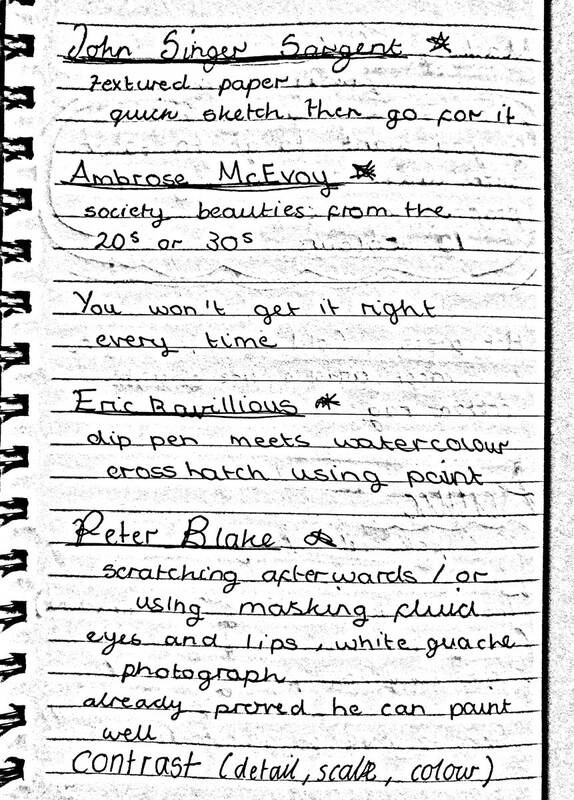 John Singer Sargent
textured paper
quick sketch then go for it
Ambrose McEvoy
society beauties from the
20s or 30s
You won't get it right
every time
Eric Ravillious
dip pen meets watercolour
cross hatch using paint
Peter Blake
scratching afterwards / or
using masking fluid
eyes and lips, white guache
photograph
already proved he can paint
well
contrast (detail, scale, colour)